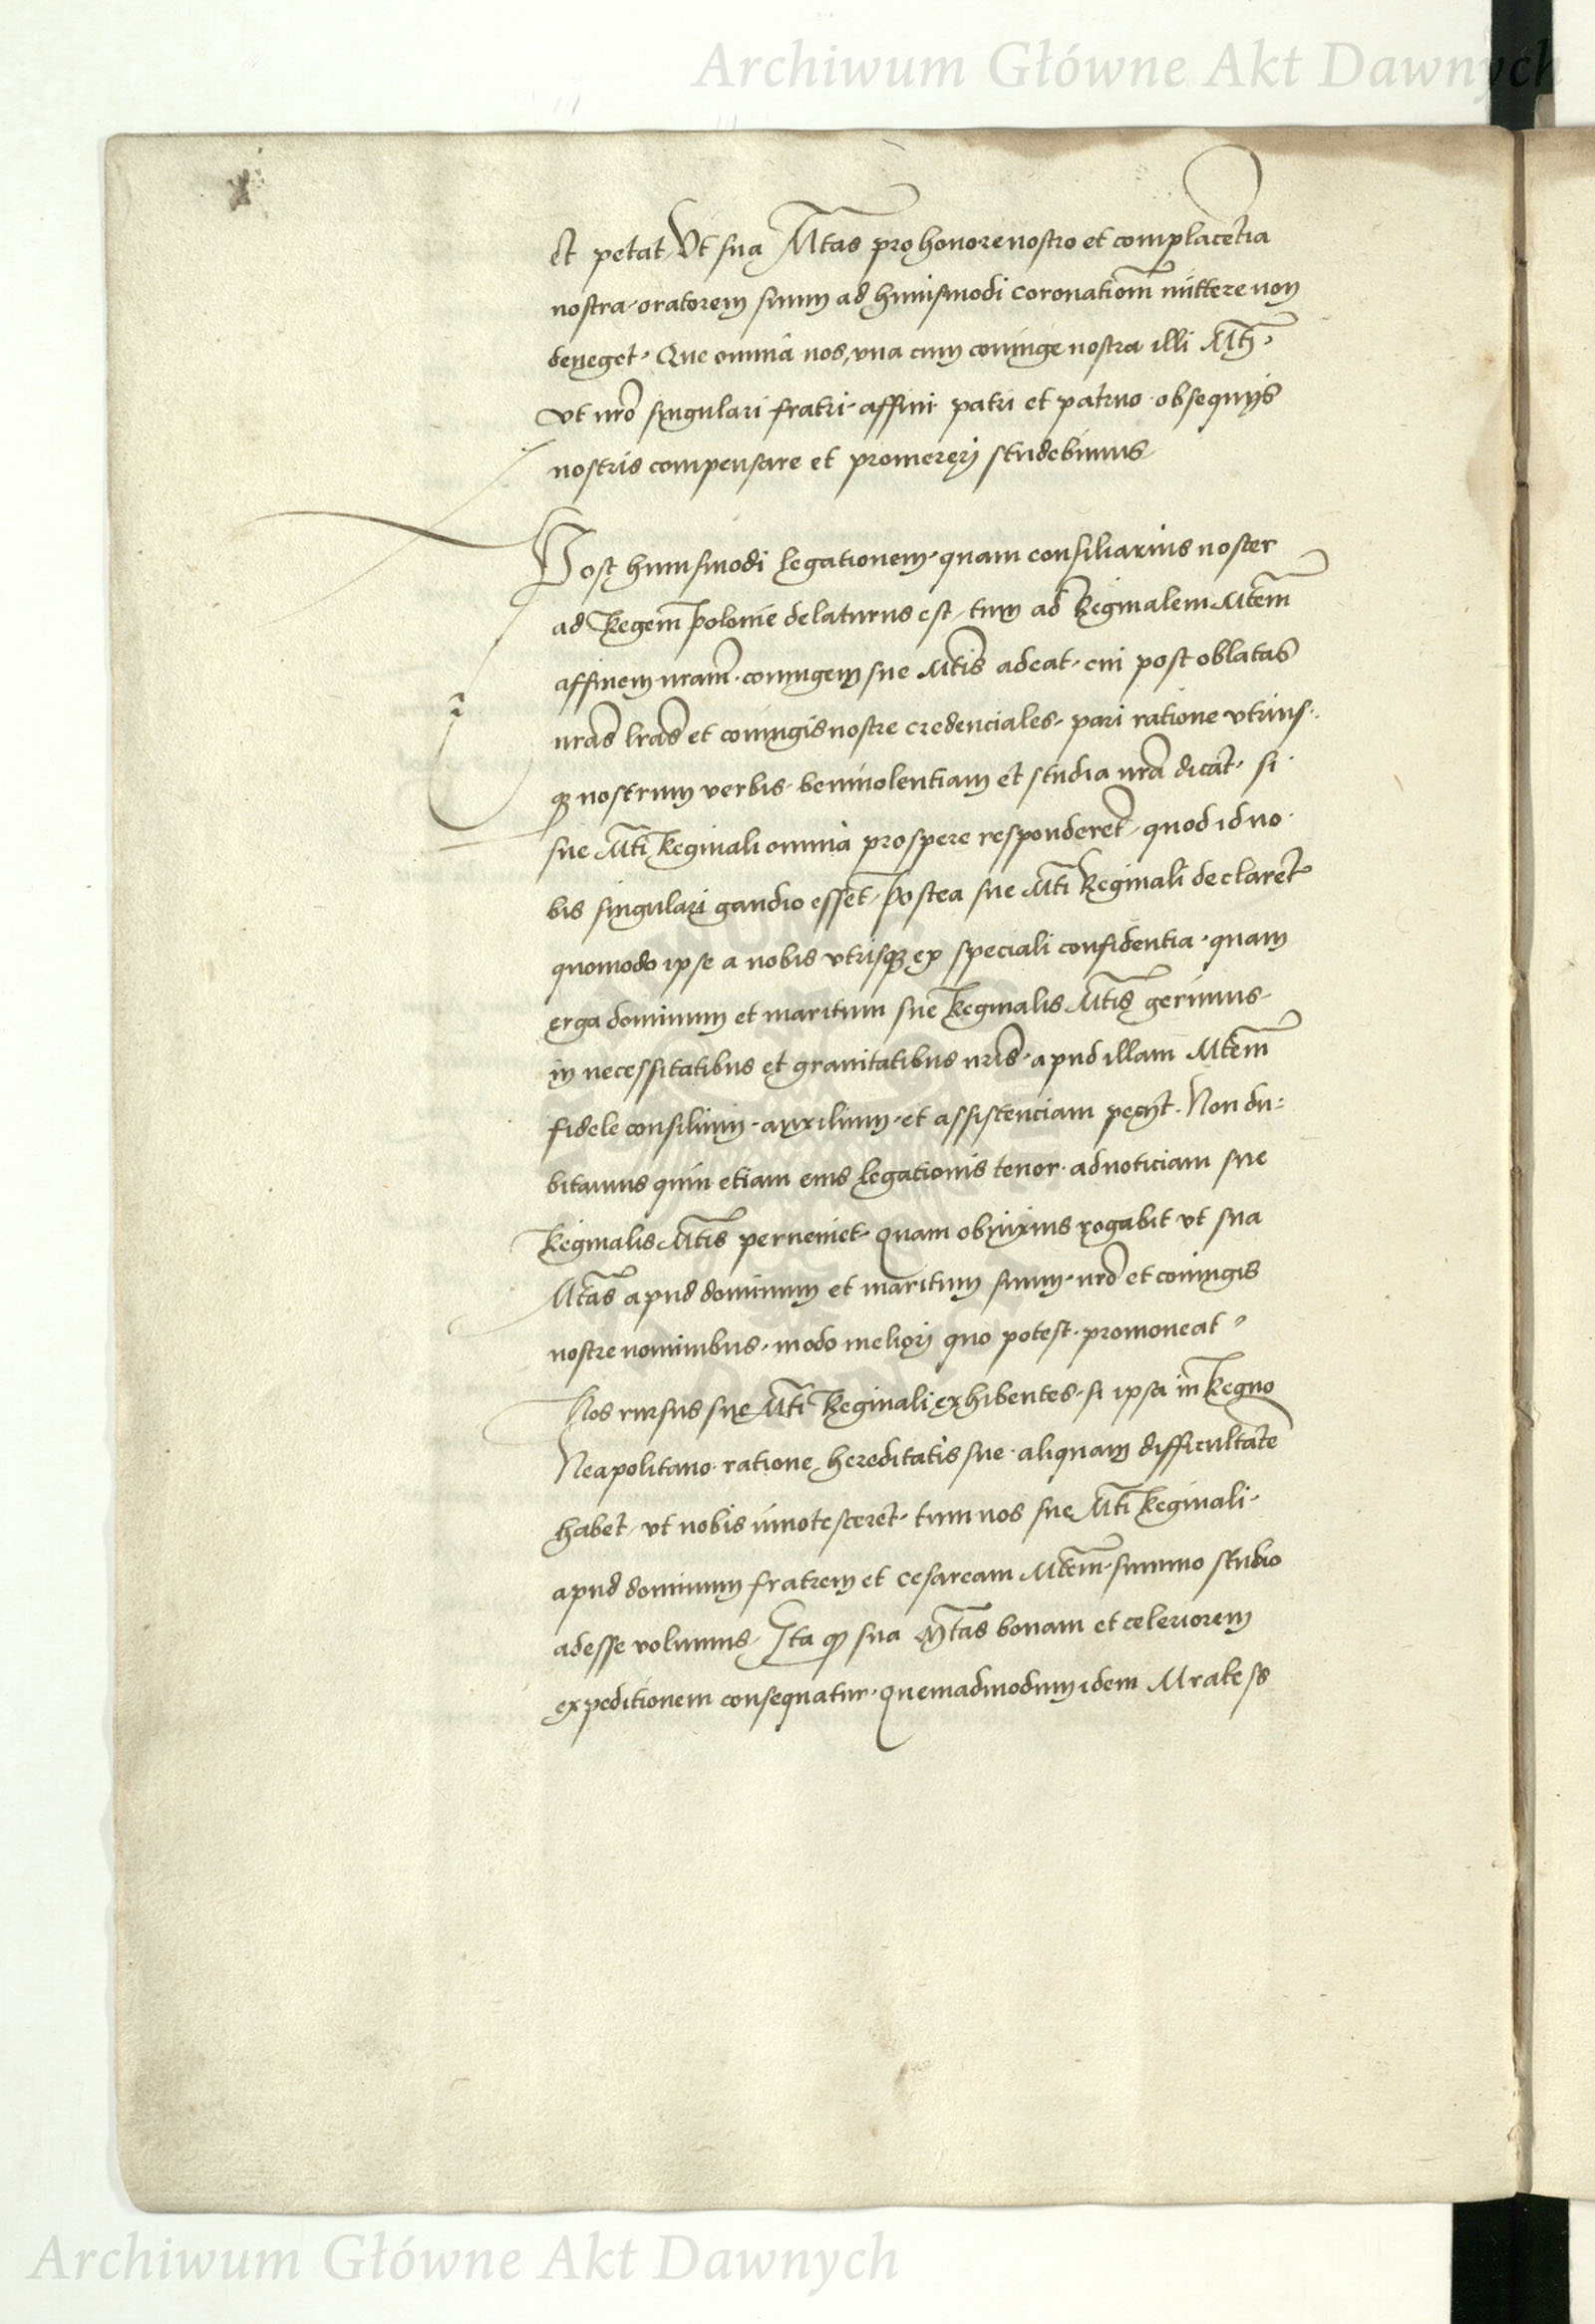 Archiwum Główne Akt Dawnych
Et petat, Vt sua Mtas pro honore nostro et complacētia
nostra · oratorem suum ad huiusmodi coronationē mittere non
deneget · Que omnia nos, vna cum coniuge nostra illi Mti ·
vt nro singulari fratri · affini patri et patruo · obsequijs
nostris compensare et promereri studebimus
Post huiusmodi legationem · quam consiliarius noster
ad Regem Polonie delaturus est, tum ad Reginalem Mtem
affinem nram · coniugem sue Mtis adeat · cui post oblatas
nras lras et coniugis nostre credenciales · pari ratione vtrius
q nostrum verbis · beniuolentiam et studia nra dicat · si
sue Mti Reginali omnia prospere responderet, quod id no
bis singulari gaudio esset, Postea sue Mti Reginali declaret
quomodo ipse a nobis vtrisq ex speciali confidentia · quam
erga dominum et maritum sue Reginalis Mtis gerimus
in necessitatibus et grauitatibus nris · apud illam Mtem
fidele consilium · auxilium · et assistenciam peijt · Non du=
bitamus quin etiam eius legationis tenor · ad noticiam sue
Reginalis Mtis perueniet · Quam obnixius rogabit vt sua
Mtas apud dominum et maritum suum · nro et coniugis
nostre nominibus · modo meliori quo potest · promoueat
Nos rursus sue Mti Reginali exhibentes · si ipsa in Regno
Neapolitano · ratione hereditatis sue · aliquam difficultatē
habet, vt nobis innotesceret · tum nos sue Mti Reginali ·
apud dominum fratrem et cesaream Mtem · summo studio
adesse volumus, Ita q sua Mtas bonam et celeriorem
expeditionem consequatur · Quemadmodum idem Mrakess
Archiwum Główne Akt Dawnych